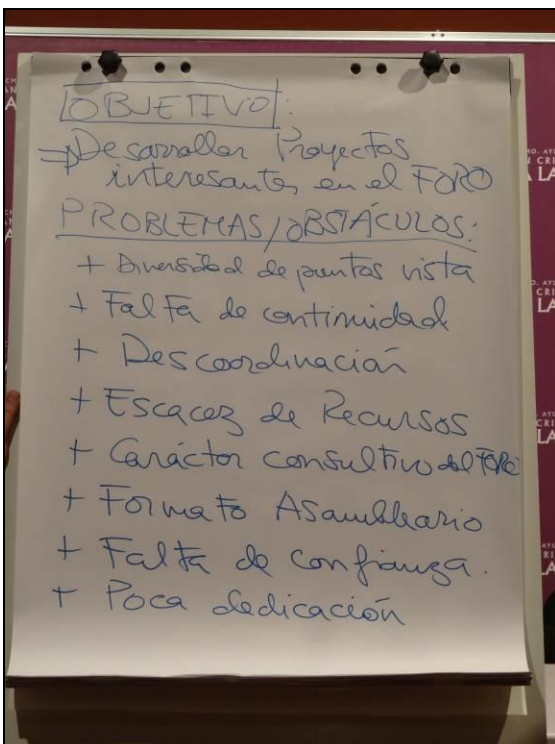 OBJETIVO:
⇒ Desarrollar Proyectos
interesantes en el FORO
PROBLEMAS/OBSTÁCULOS:
+ Diversidad de puntos vista
+ Falta de continuidad
+ Descoordinación
+ Escacez de Recursos
+ Carácter consultivo del FORO
+ Formato Asambleario
+ Falta de confianza.
+ Poca dedicación